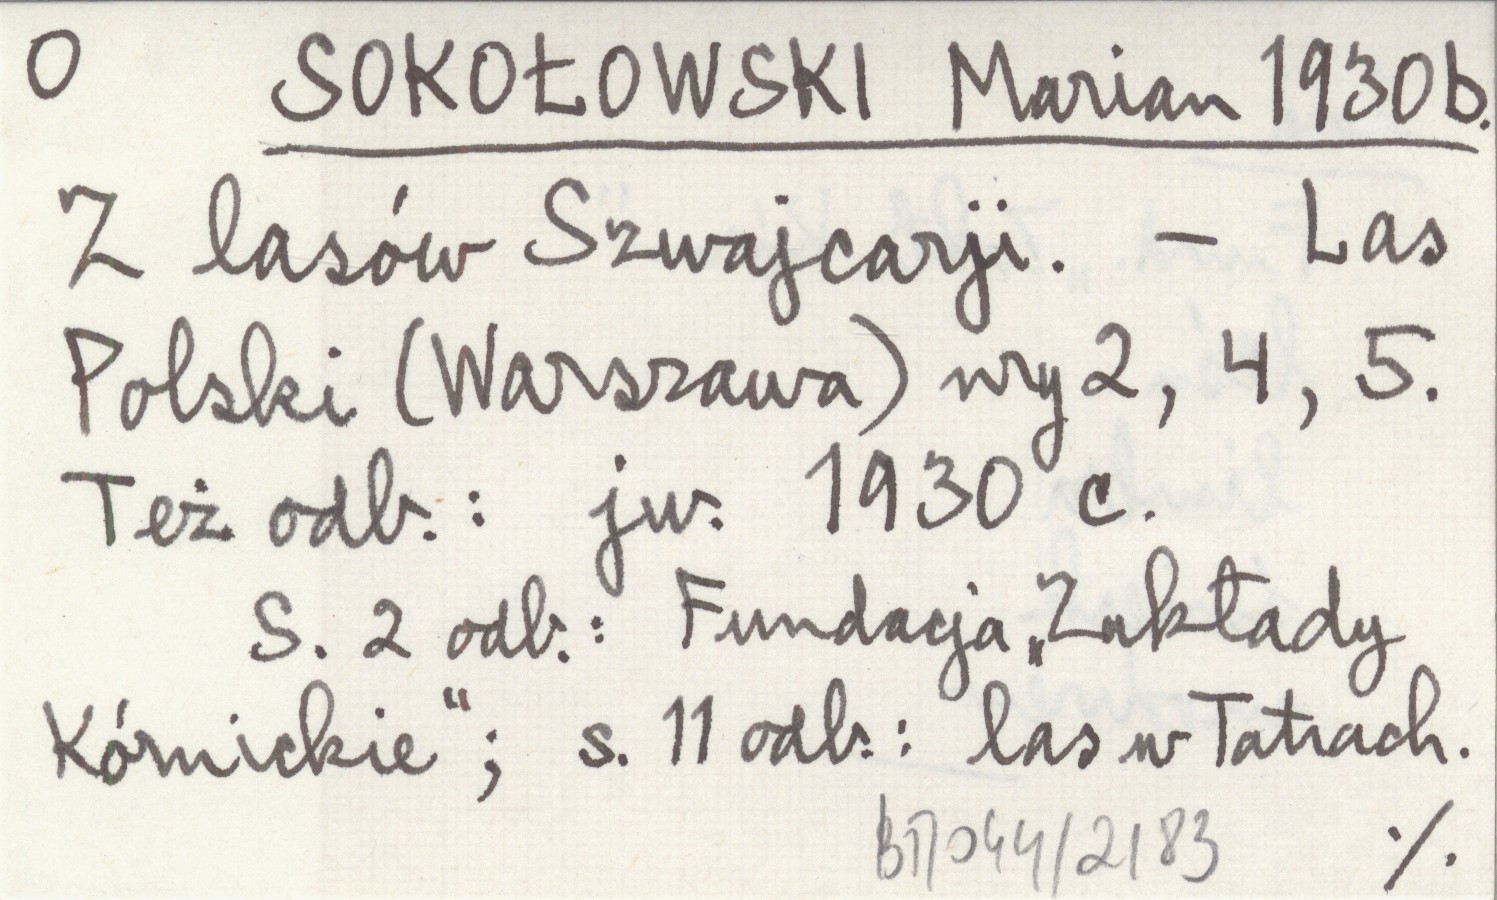 O SOKOŁOWSKI Marian 1930b.
Z lasów Szwajcarji. – Las
Polski (Warszawa) nry 2, 4, 5.
Też odb.: jw. 1930 c.
S. 2 odb.: Fundacja „Zakłady
Kórnickie“; s. 11 odb.: las w Tatrach.
044/2183 ./.